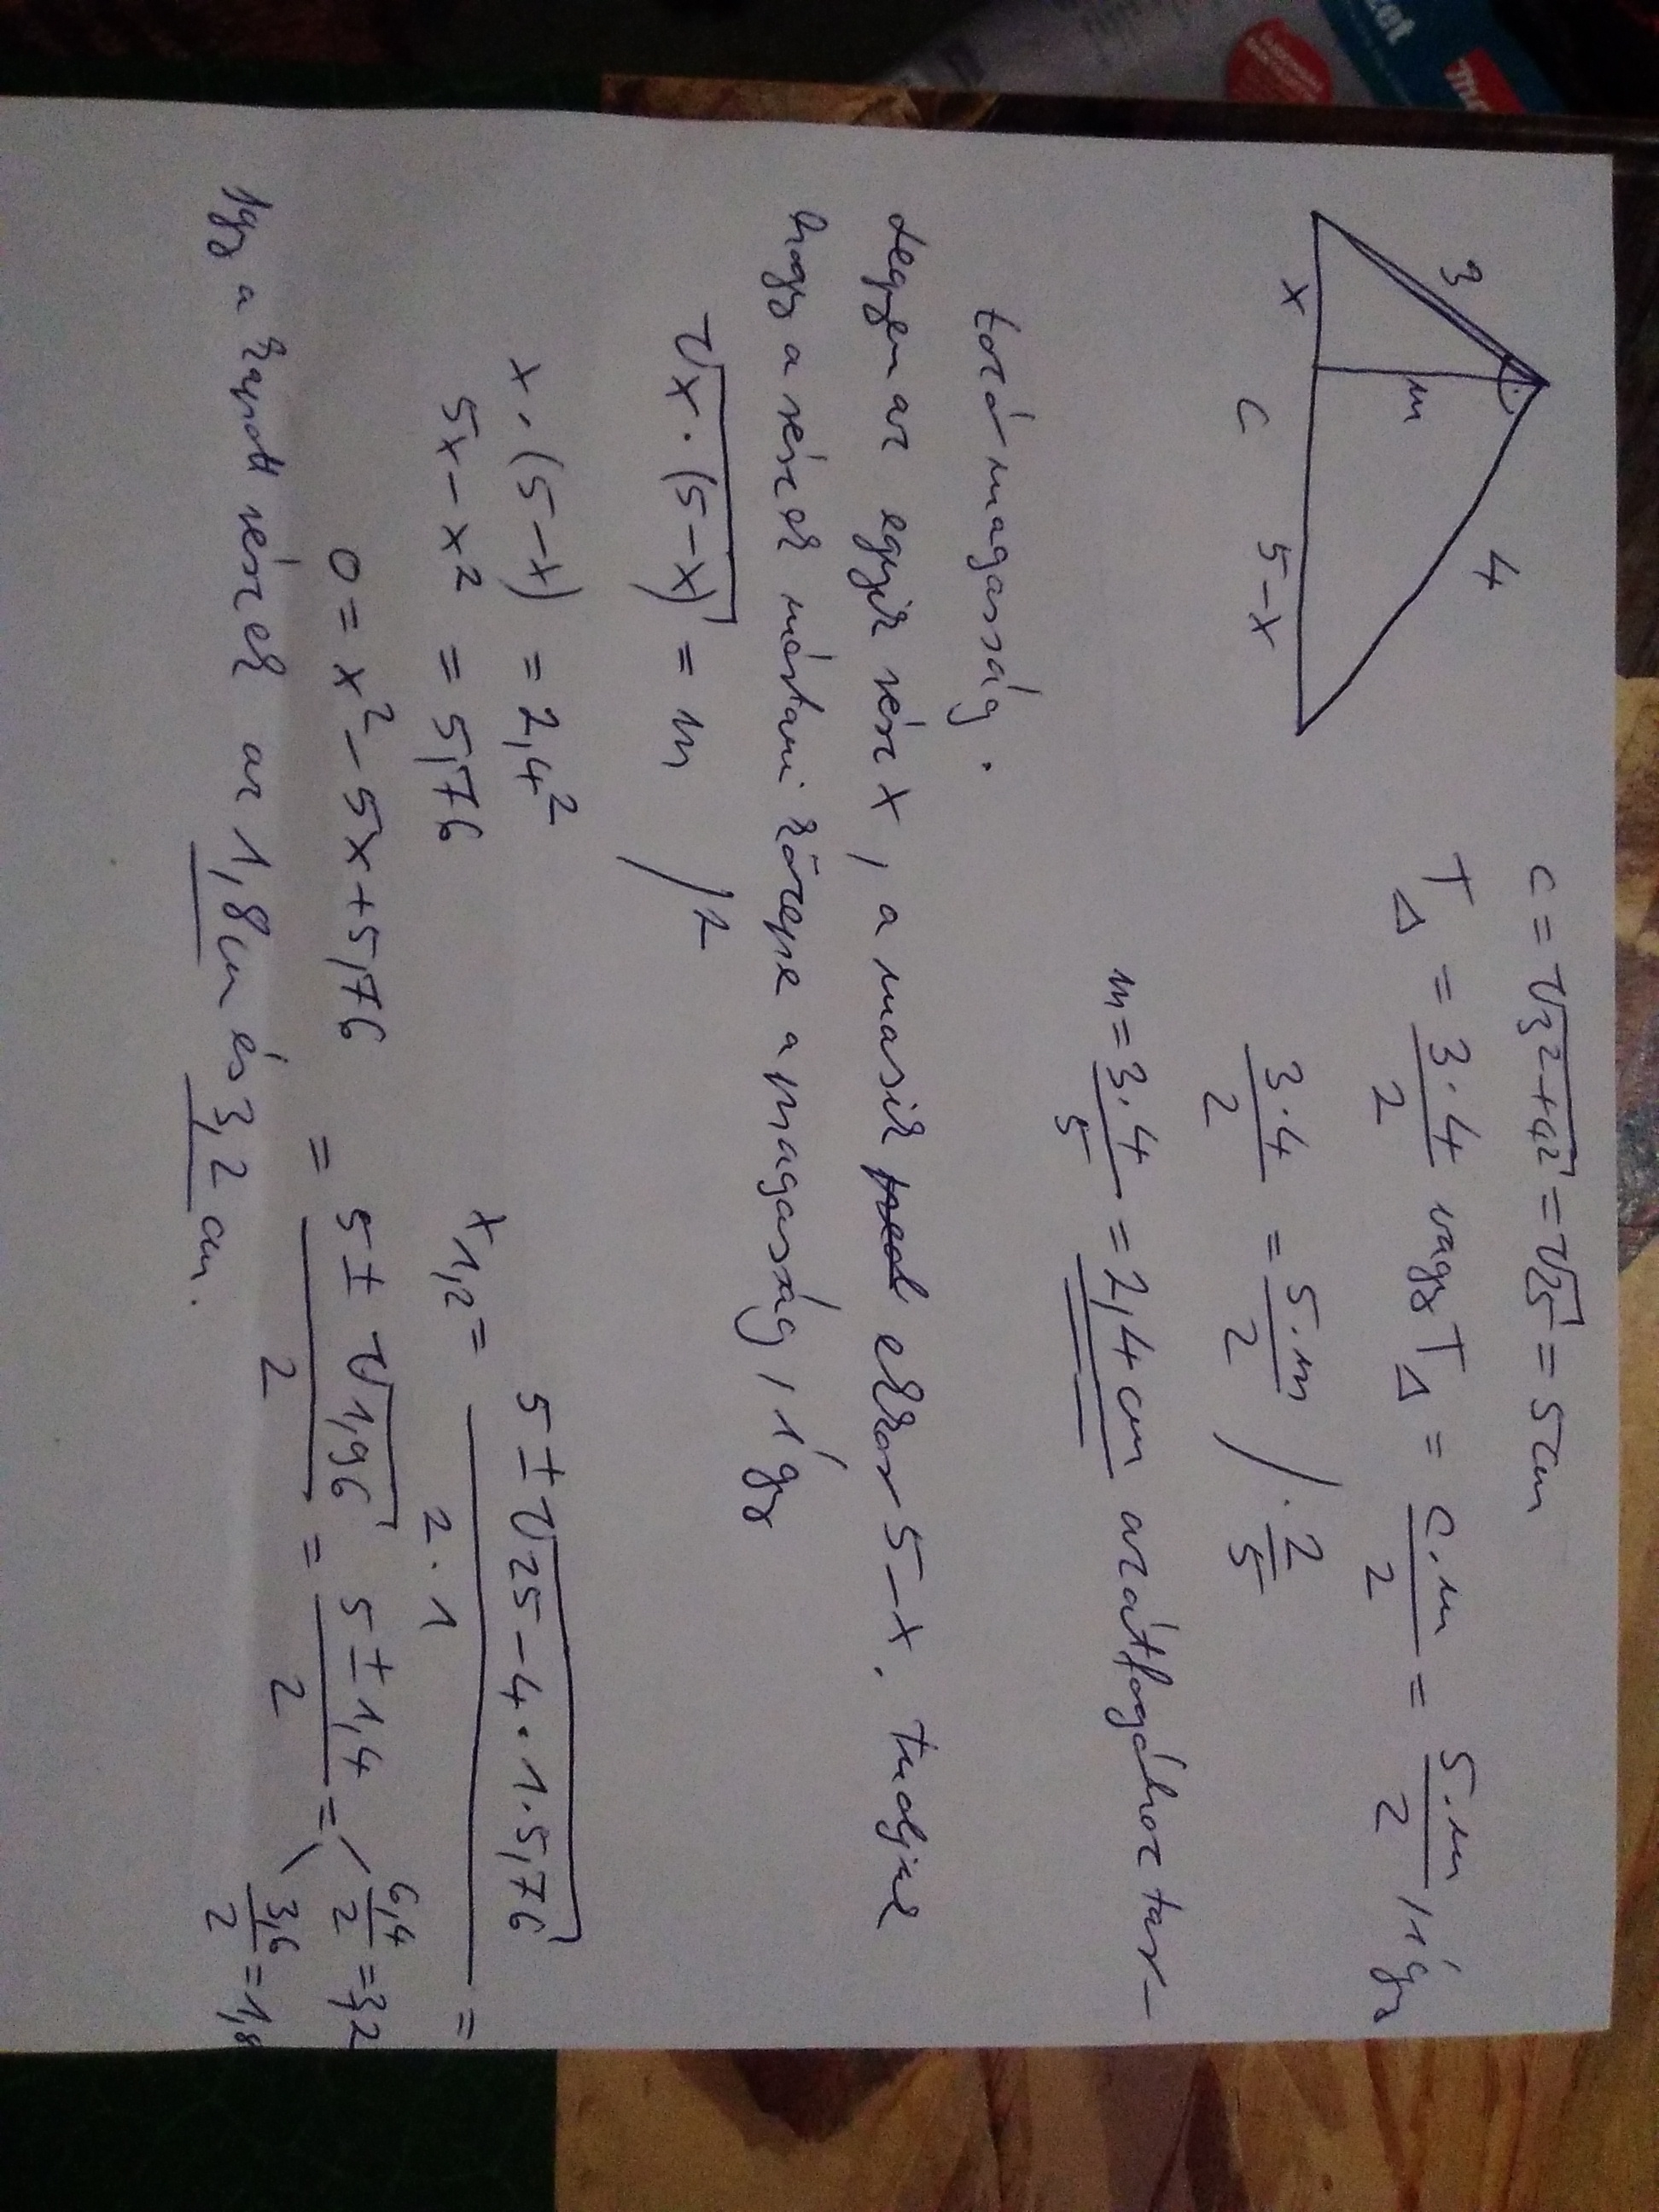 3
4
m
x
c
5-x
c = √3²+4² = √25 = 5 cm
T△ = 3·4/2 vagy T△ = c·m/2 = 5·m/2, így
3·4/2 = 5·m/2 /·2/5
m = 3·4/5 = 2,4 cm az átfogóhoz tar-
tozó magasság.
Legyen az egyik rész x, a másik ekkor 5-x. Tudjuk
hogy a részek mértani közepe a magasság, így
√x·(5-x) = m /²
x·(5-x) = 2,4²
5x - x² = 5,76
0 = x² - 5x + 5,76
x1,2 = 5 ± √25 - 4·1·5,76 / 2·1 =
= 5 ± √1,96 / 2 = 5 ± 1,4 / 2 =
6,4/2 = 3,2
3,6/2 = 1,8
Így a kapott részek az 1,8 cm és 3,2 cm.